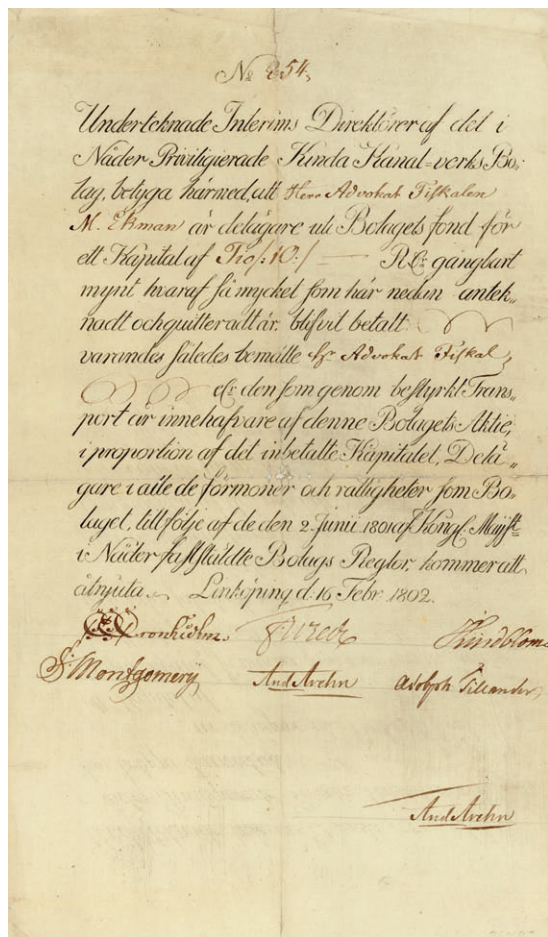 No 254.
Undertecknade Interims Direktörer af det i
Nåder Priviligierade Kinda Kanal-verks Bo-
lag, betyga härmed, att Herr Advokat Fiskalen
M. Ekman är delägare uti Bolagets fond för
ett Kapital af Tio/:10:/ — R.Dr gångbart
mynt hvaraf så mycket som här nedan anteck-
nadt och quitteradt är, blifvit betalt
varandes således bemälte Hr Advokat Fiskal
Elr den som genom bestyrkt Trans-
port är innehafvare af denne Bolagets Aktie,
i proportion af det inbetalte Kapitalet, Delä-
gare i alle de förmoner och rättigheter som Bo-
laget, till följe af de den 2. Junii 1801 af Kongl. Majst
i Nåder fastställdte Bolags Reglor, kommer att
åtnjuta. Linköping d. 16 Febr. 1802.
Cronhielm.
S. Montgomery And Arehn Adolph Tillander
And Arehn